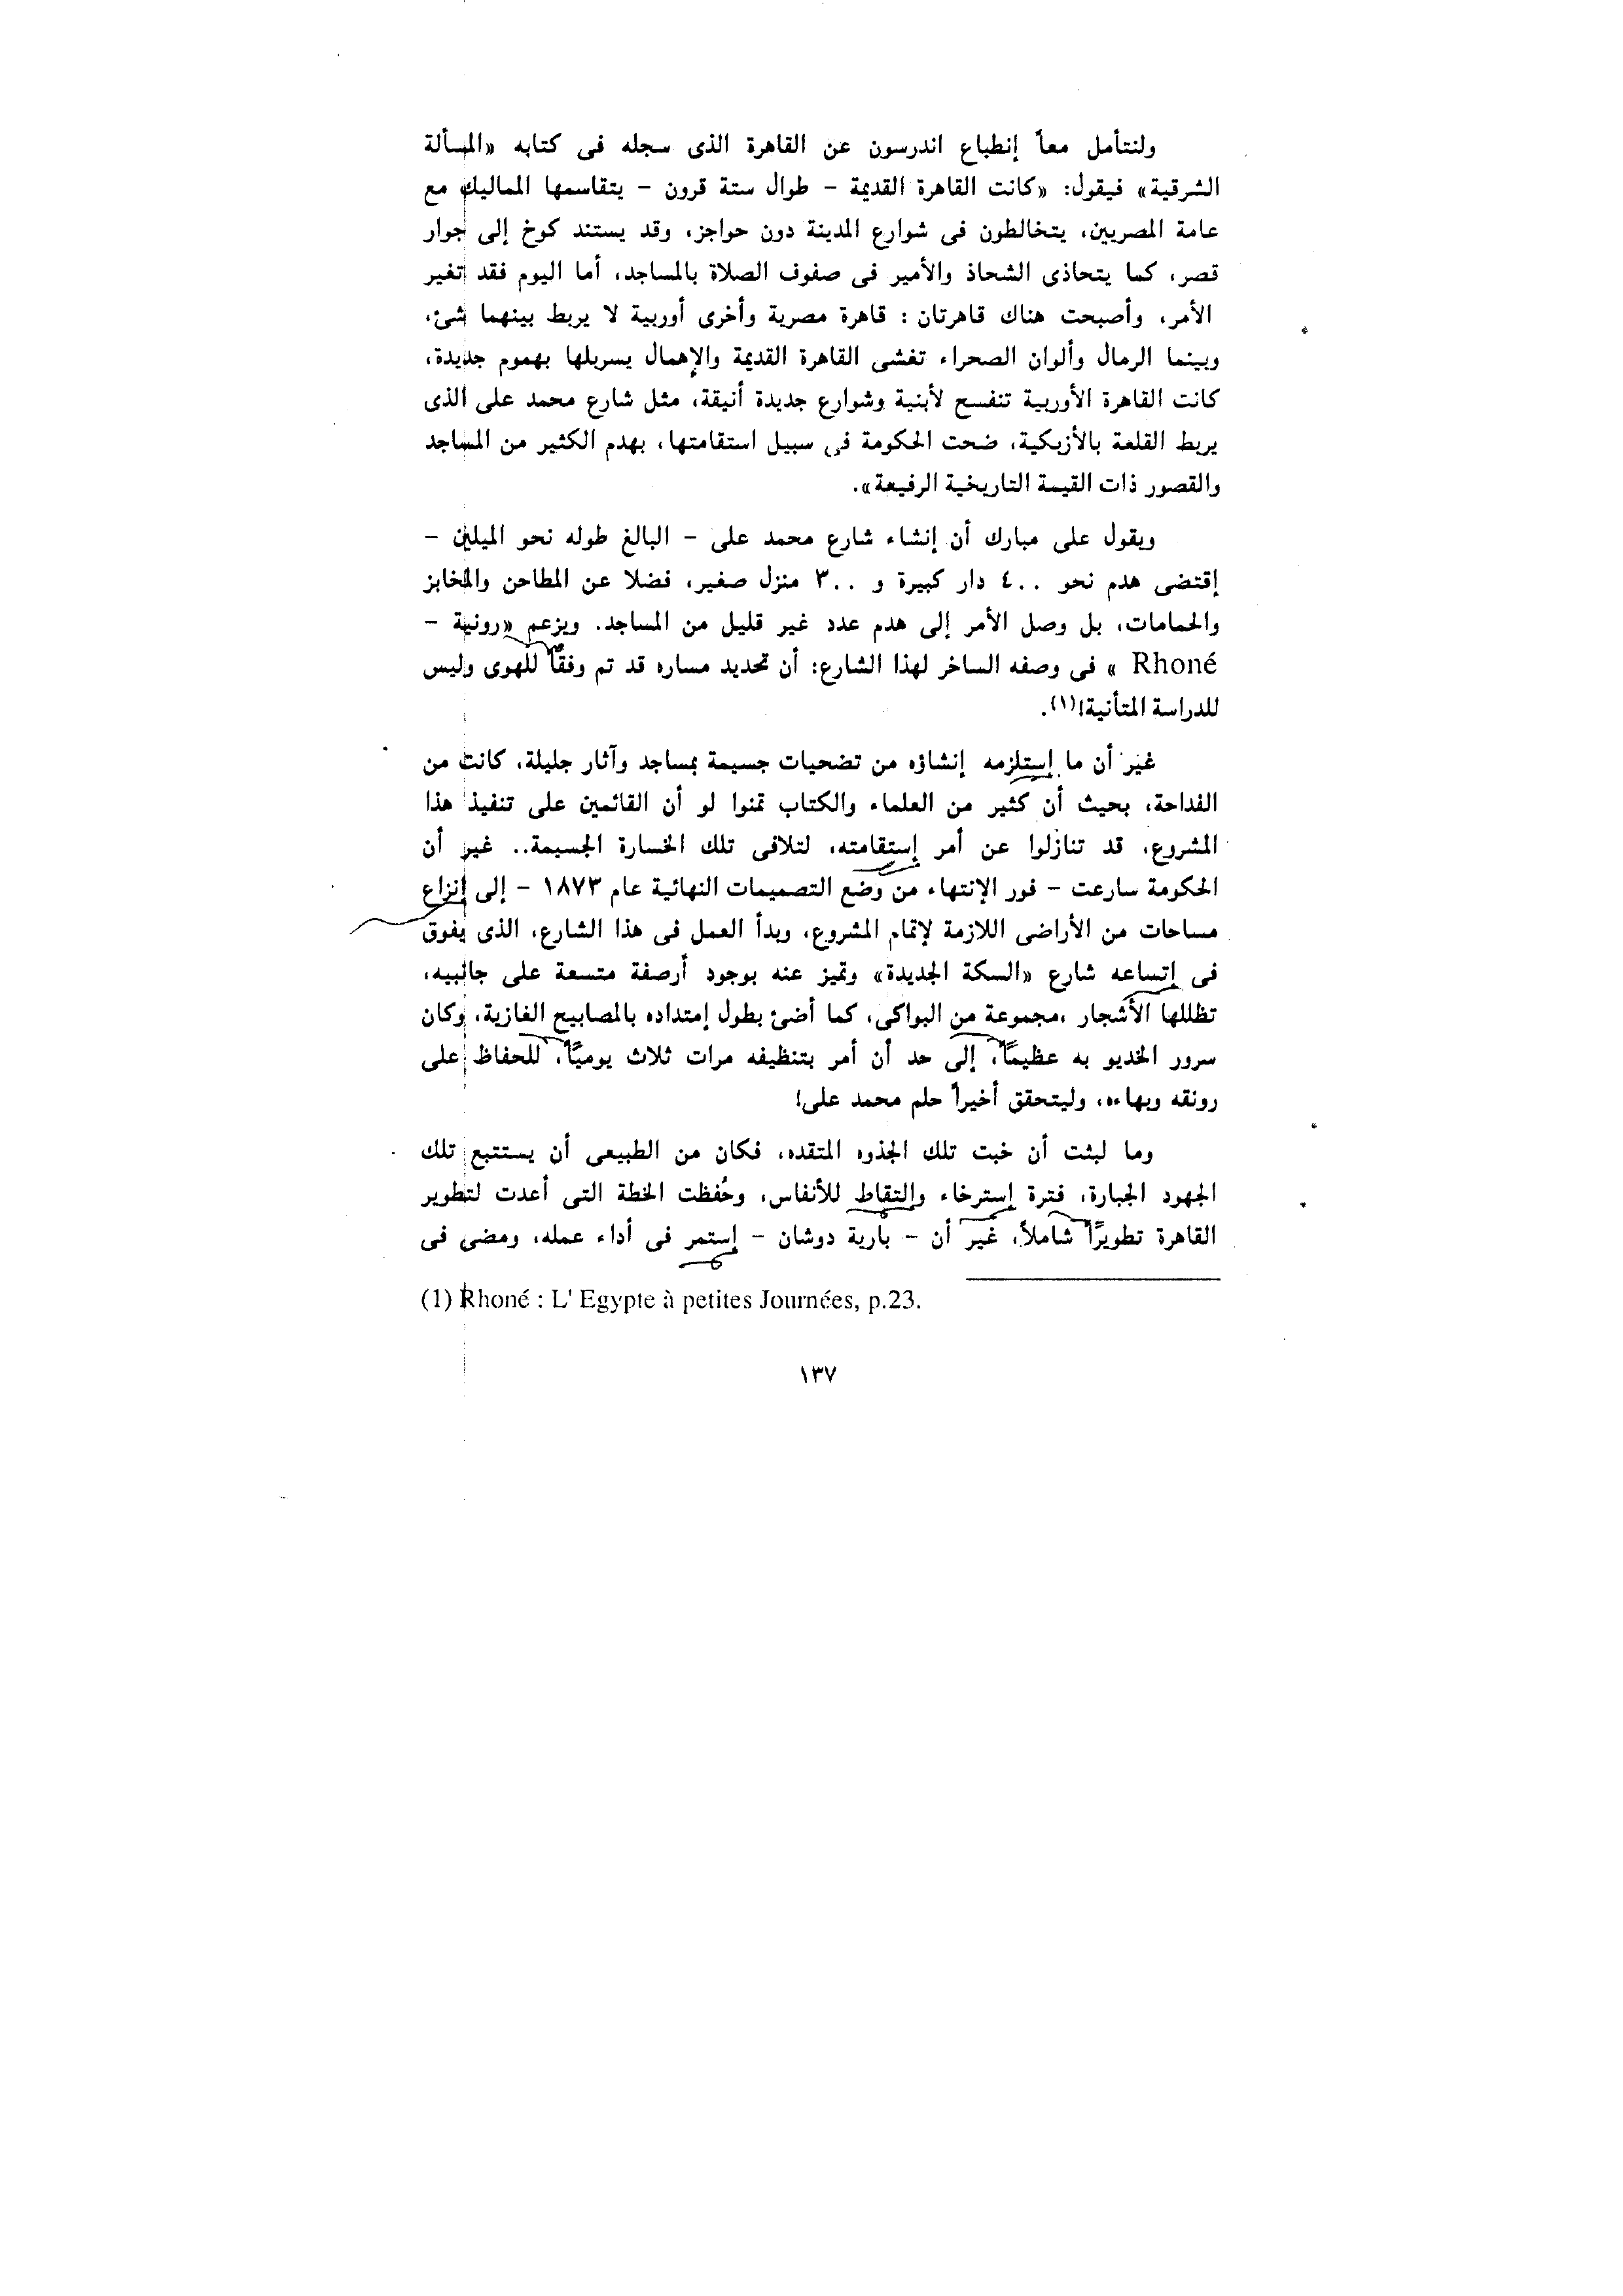 ولنتأمل معاً إنطباع اندرسون عن القاهرة الذى سجله فى كتابه «المسألة
الشرقية» فيقول: «كانت القاهرة القديمة - طوال ستة قرون - يتقاسمها المماليك مع
عامة المصريين، يتخالطون فى شوارع المدينة دون حواجز، وقد يستند كوخ إلى جوار
قصر، كما يتحاذى الشحاذ والأمير فى صفوف الصلاة بالمساجد، أما اليوم فقد تغير
الأمر، وأصبحت هناك قاهرتان : قاهرة مصرية وأخرى أوربية لا يربط بينهما شئ،
وبينما الرمال وألوان الصحراء تغشى القاهرة القديمة والإهمال يسربلها بهموم جديدة،
كانت القاهرة الأوربية تنفسح لأبنية وشوارع جديدة أنيقة، مثل شارع محمد على الذى
يربط القلعة بالأزبكية، ضحت الحكومة فى سبيل استقامتها، بهدم الكثير من المساجد
والقصور ذات القيمة التاريخية الرفيعة».
ويقول على مبارك أن إنشاء شارع محمد على - البالغ طوله نحو الميلين -
إقتضى هدم نحو ٤٠٠ دار كبيرة و ٣٠٠ منزل صغير، فضلا عن المطاحن والمخابز
والحمامات، بل وصل الأمر إلى هدم عدد غير قليل من المساجد. ويزعم «رونية -
Rhoné » فى وصفه الساخر لهذا الشارع: أن تحديد مساره قد تم وفقًا للهوى وليس
للدراسة المتأنية!(١).
غير أن ما إستلزمه إنشاؤه من تضحيات جسيمة بمساجد وآثار جليلة، كانت من
الفداحة، بحيث أن كثير من العلماء والكتاب تمنوا لو أن القائمين على تنفيذ هذا
المشروع، قد تنازلوا عن أمر إستقامته، لتلافى تلك الخسارة الجسيمة.. غير أن
الحكومة سارعت - فور الإنتهاء من وضع التصميمات النهائية عام ١٨٧٣ - إلى إنزاع
مساحات من الأراضى اللازمة لإتمام المشروع، وبدأ العمل فى هذا الشارع، الذى يفوق
فى إتساعه شارع «السكة الجديدة» وتميز عنه بوجود أرصفة متسعة على جانبيه،
تظللها الأشجار ،مجموعة من البواكى، كما أضئ بطول إمتداده بالمصابيح الغازية، وكان
سرور الخديو به عظيمًا، إلى حد أن أمر بتنظيفه مرات ثلاث يوميًا، للحفاظ على
رونقه وبهاءه، وليتحقق أخيراً حلم محمد على!
وما لبثت أن خبت تلك الجذوه المتقده، فكان من الطبيعى أن يستتبع تلك
الجهود الجبارة، فترة إسترخاء والتقاط للأنفاس، وحُفظت الخطة التى أعدت لتطوير
القاهرة تطويرًا شاملاً، غير أن - بارية دوشان - إستمر فى أداء عمله، ومضى فى
(1) Rhoné : L' Egypte à petites Journées, p.23.
١٣٧